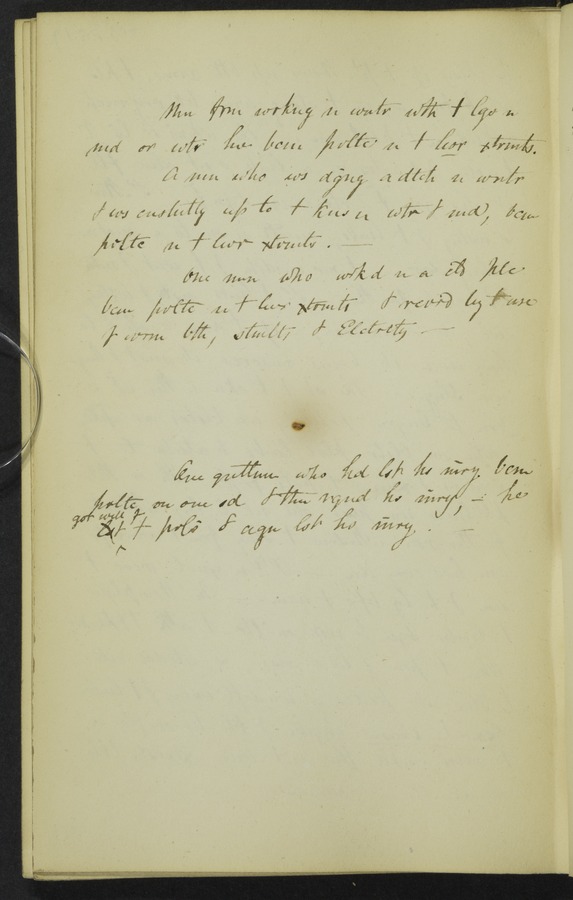 Mn frm wrkng n wntr wth t lgs n
md or wtr hve bcm prltc n t lwr xtrmts.
A mn who ws dgng a dtch n wntr
& ws cnstntly up to t knes n wtr & md, bcm
prltc n t lwr xtrmts. —
One mn who wrkd n a cld plc
bcm prltc n t lwr xtrmts & recvrd by t use
f wrm bth, stmlts & Elctrcty —
One gnttmn who hd lst hs mry. bcm
prltc on one sd & thn rgnd hs mry, — he
got well f
t prls & agn lst hs mry. —